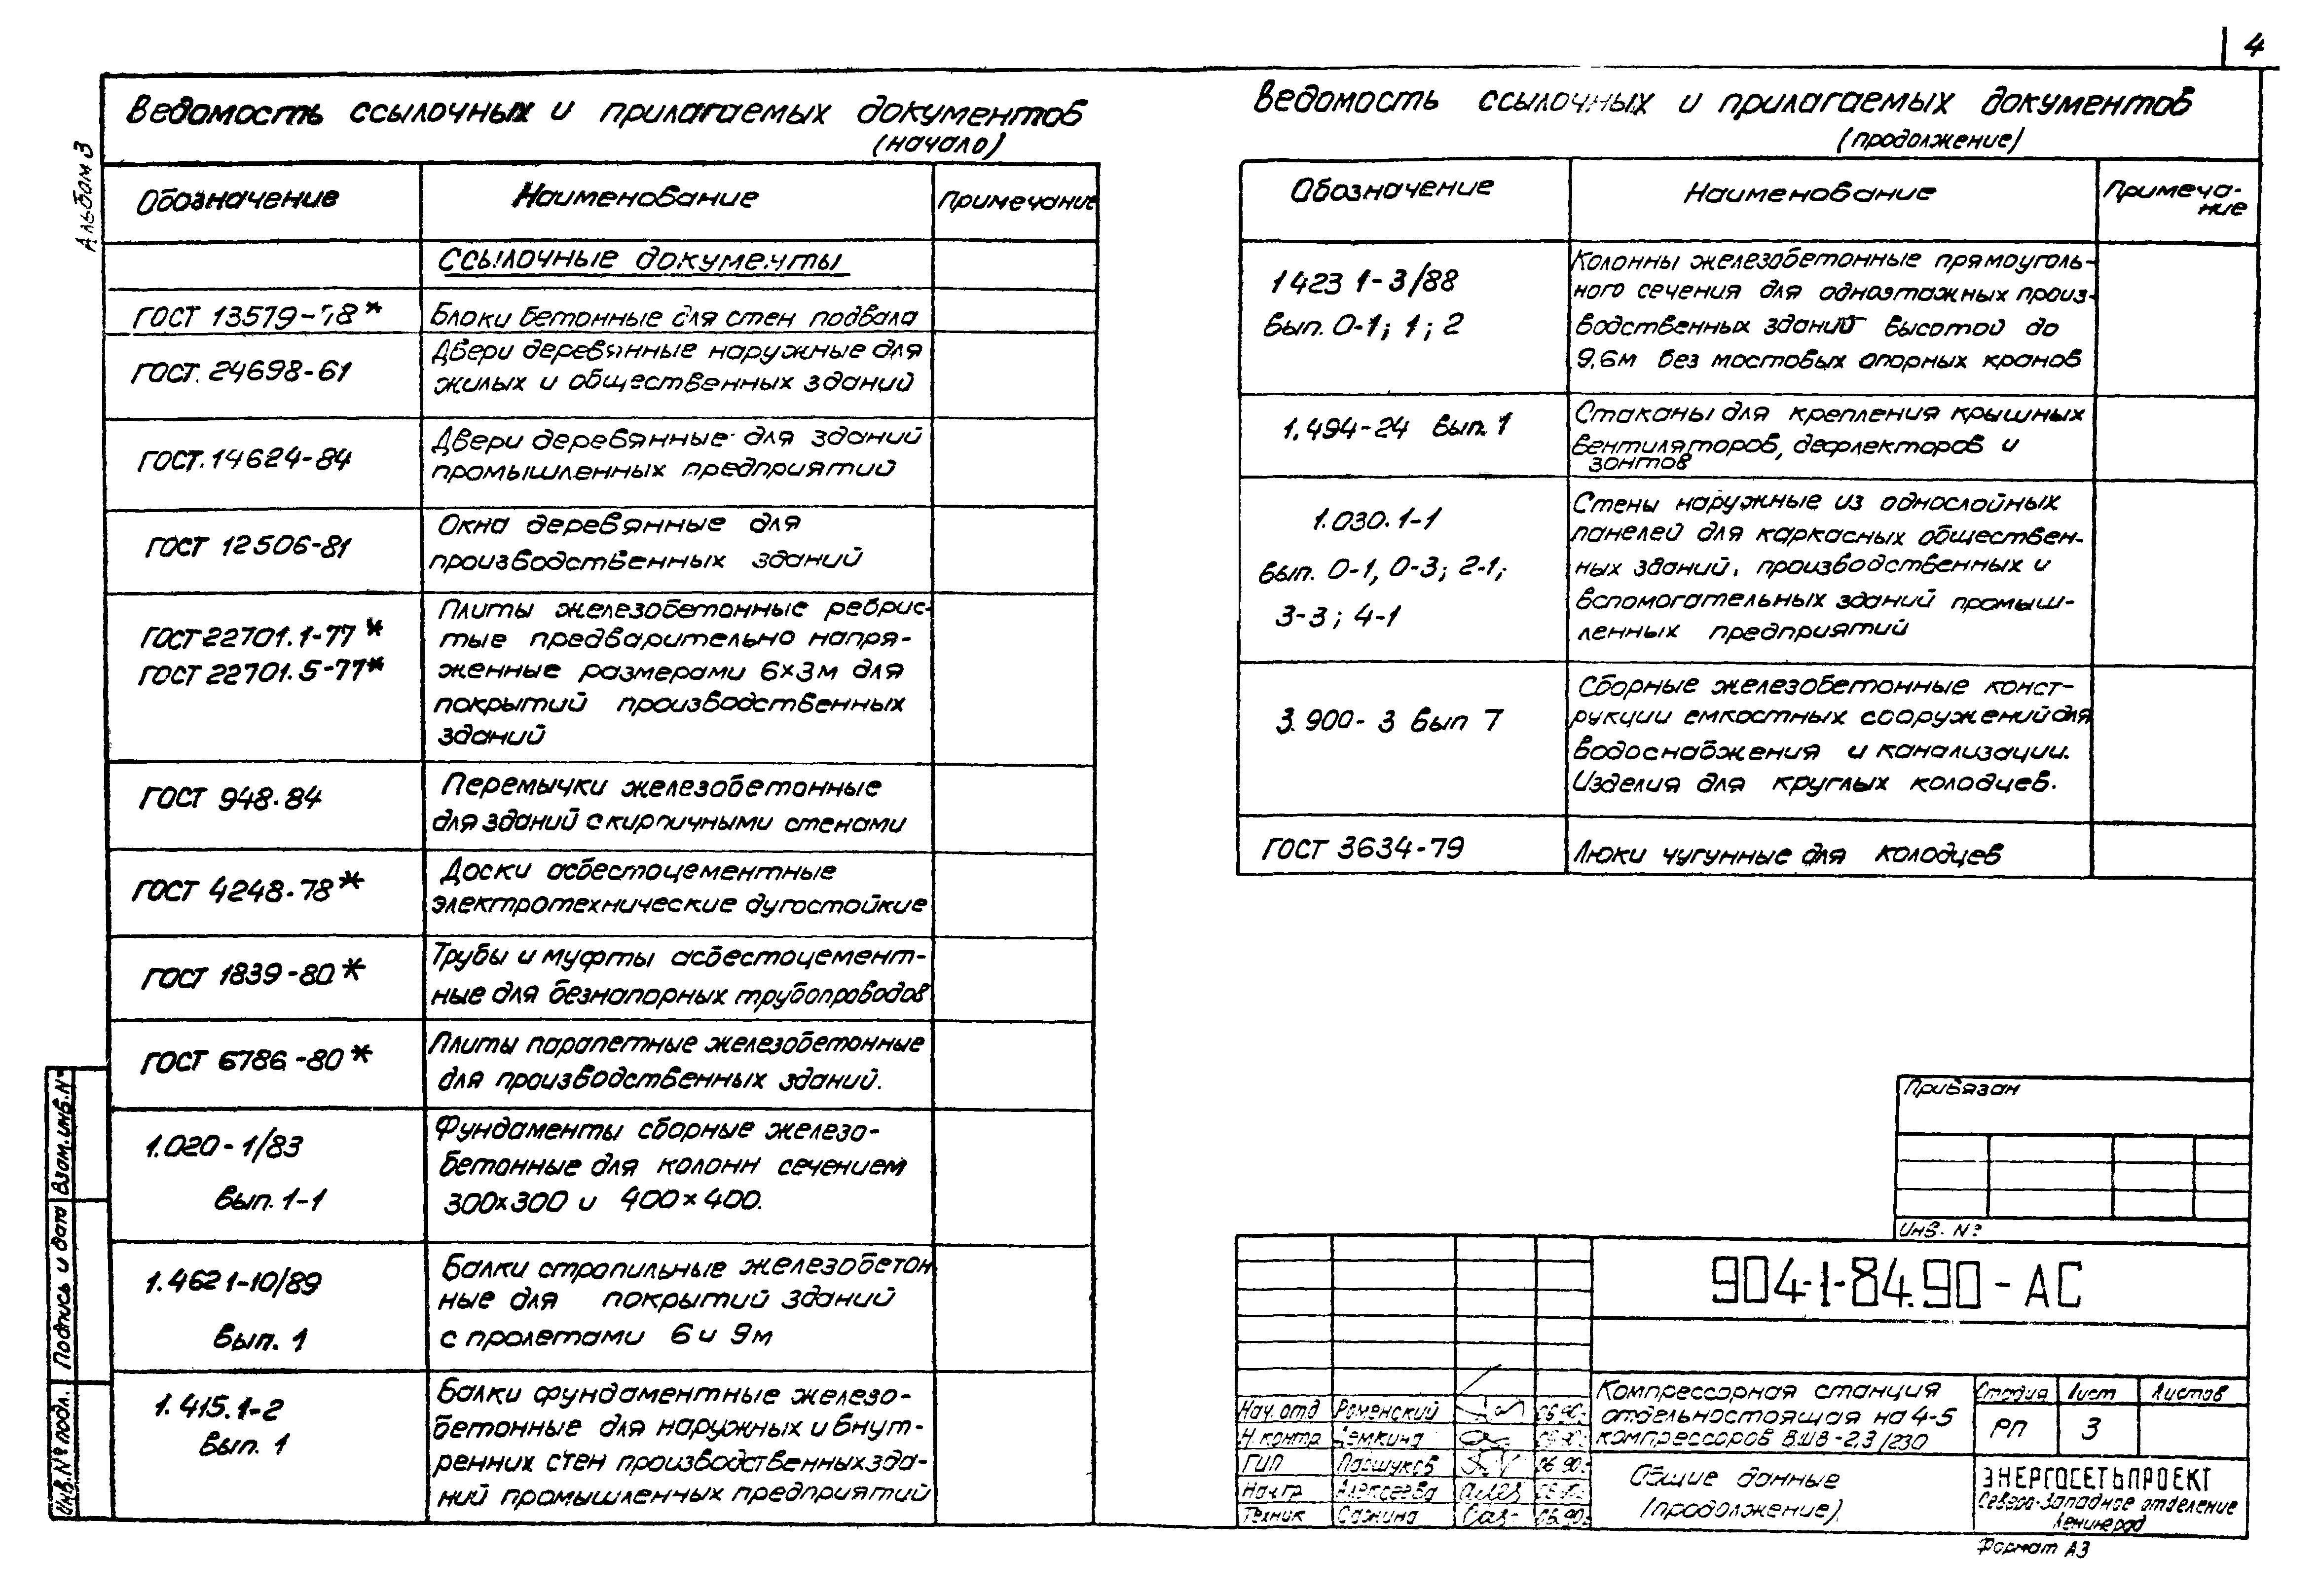 4
Альбом 3
Ведомость ссылочных и прилагаемых документов
(начало)
Обозначение Наименование Примечание
Ссылочные документы
ГОСТ 13579-78* Блоки бетонные для стен подвала
ГОСТ. 24698-61 Двери деревянные наружные для
жилых и общественных зданий
ГОСТ. 14624-84 Двери деревянные для зданий
промышленных предприятий
ГОСТ 12506-81 Окна деревянные для
производственных зданий
ГОСТ 22701.1-77*
ГОСТ 22701.5-77*
Плиты железобетонные ребрис-
тые предварительно напря-
женные размерами 6×3м для
покрытий производственных
зданий
ГОСТ 948.84 Перемычки железобетонные
для зданий с кирпичными стенами
ГОСТ 4248.78* Доски асбестоцементные
электротехнические дугостойкие
ГОСТ 1839-80* Трубы и муфты асбестоцемент-
ные для безнапорных трубопроводов
ГОСТ 6786-80* Плиты парапетные железобетонные
для производственных зданий.
1.020-1/83
Вып. 1-1
Фундаменты сборные железо-
бетонные для колонн сечением
300×300 и 400×400.
1.462 1-10/89
Вып. 1
Балки стропильные железобетон
ные для покрытий зданий
с пролетами 6 и 9м
1.415.1-2
Вып. 1
Балки фундаментные железо-
бетонные для наружных и внут-
ренних стен производственных зда-
ний промышленных предприятий
Ведомость ссылочных и прилагаемых документов
(продолжение)
Обозначение Наименование Примеча-
ние
1 423 1-3/88
Вып. 0-1; 1; 2
Колонны железобетонные прямоуголь-
ного сечения для одноэтажных произ-
водственных зданий высотой до
9,6м без мостовых опорных кранов
1.494-24 Вып. 1 Стаканы для крепления крышных
вентиляторов, дефлекторов и
зонтов
1.030.1-1
Вып. 0-1, 0-3; 2-1;
3-3; 4-1
Стены наружные из однослойных
панелей для каркасных обществен-
ных зданий, производственных и
вспомогательных зданий промыш-
ленных предприятий
3.900-3 Вып 7 Сборные железобетонные конст-
рукции емкостных сооружений для
водоснабжения и канализации.
Изделия для круглых колодцев.
ГОСТ 3634-79 Люки чугунные для колодцев
Привязан
Инв. №
904-1-84.90-АС
Компрессорная станция
отдельностоящая на 4-5
компрессоров ВШВ-2,3/230
Стадия Лист Листов
РП 3
Нач. отд Роменский 06.90
Н. контр Демкина
ГИП Паршуков 06.90
Нач. гр Алексеева
Техник Сажина 06.90
Общие данные
(продолжение).
ЭНЕРГОСЕТЬПРОЕКТ
Северо-Западное отделение
Ленинград
Формат А3
Инв. № подл. Подпись и дата Взам. инв. №